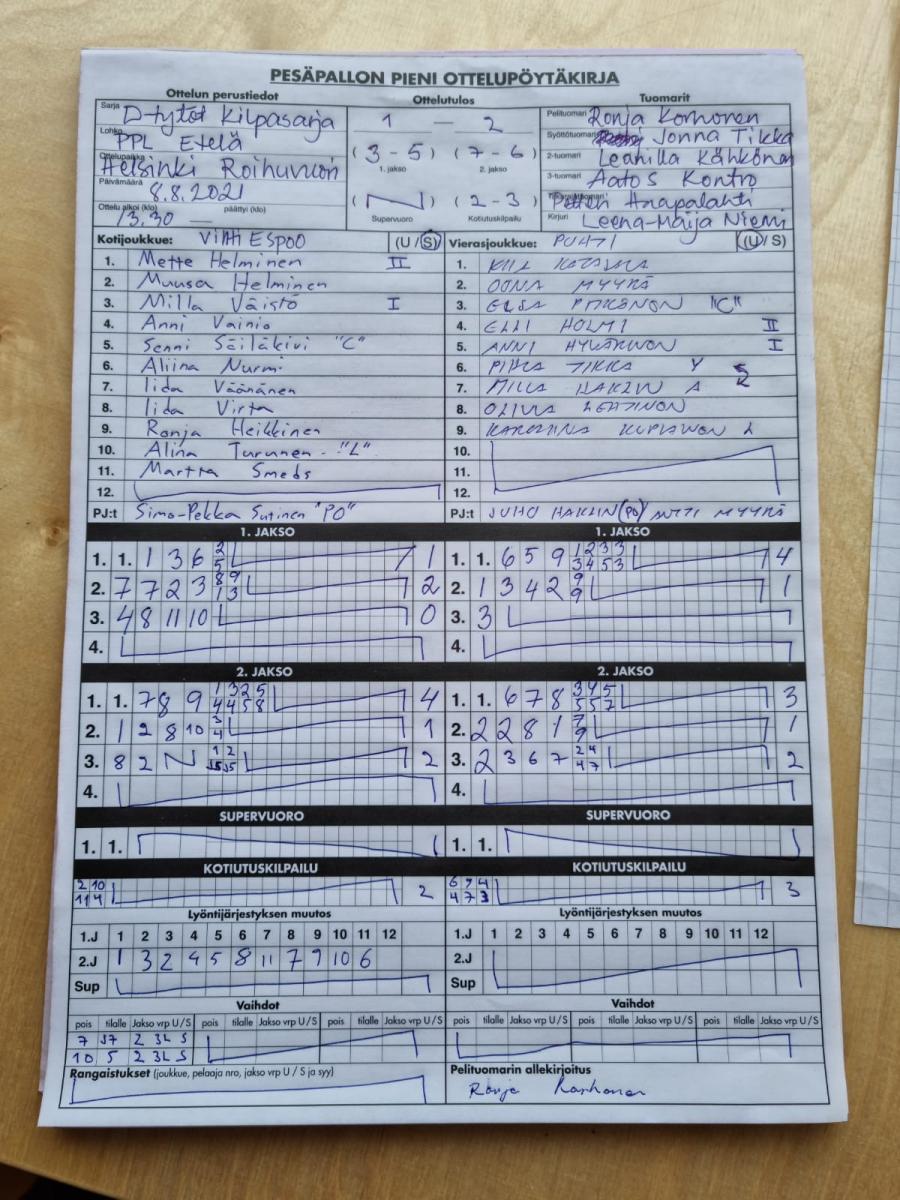 PESÄPALLON PIENI OTTELUPÖYTÄKIRJA
Ottelun perustiedot
Sarja D-tytöt Kilpasarja
Lohko PPL Etelä
Ottelupaikka Helsinki Roihuvuori
Päivämäärä 8.8.2021
Ottelu alkoi (klo) 13.30 päättyi (klo)
Ottelutulos
1 — 2
( 3 - 5 ) ( 7 - 6 )
1. jakso 2. jakso
( ) ( 2 - 3 )
Supervuoro Kotiutuskilpailu
Tuomarit
Pelituomari Ronja Korhonen
Syöttötuomari Jonna Tikka
2-tuomari Leanilla Kähkönen
3-tuomari Aatos Kontro
Haapalahti
Kirjuri Leena-Maija Niemi
Kotijoukkue: Vihti ESPOO (U / S)
1. Mette Helminen II
2. Muusa Helminen
3. Milla Väistö I
4. Anni Vainio
5. Senni Säiläkivi "C"
6. Aliina Nurmi
7. Iida Väänänen
8. Iida Virta
9. Ronja Heikkinen
10. Alina Turunen - "L"
11. Martta Smeds
12.
PJ:t Simo-Pekka Sutinen "PO"
Vierasjoukkue: PUHTI (U / S)
1.
2. OONA MYYRÄ
3. ELSA "C"
4. ELLI HOLMI II
5. ANNI I
6. TIKKA Y
7. MILLA A
8.
9. L
10.
11.
12.
PJ:t JUHO (PO) / ANTTI MYYRÄ
1. JAKSO
1. 1. 1 3 6 2 1
5
2. 7 7 2 3 8 9 2
1 3
3. 4 8 11 10 0
4.
1. JAKSO
1. 1. 6 5 9 1 2 3 3 4
3 4 5 3
2. 1 3 4 2 9 1
9
3. 3
4.
2. JAKSO
1. 1. 7 8 9 1 3 2 5 4
4 4 5 8
2. 1 2 8 10 3 1
4
3. 8 2 N 1 2 2
J5 J5
4.
2. JAKSO
1. 1. 6 7 8 3 4 5 3
5 5 7
2. 2 2 8 1 7 1
9
3. 2 3 6 7 2 4 2
4 7
4.
SUPERVUORO
1. 1.
SUPERVUORO
1. 1.
KOTIUTUSKILPAILU
2 10 2
11 4
KOTIUTUSKILPAILU
6 7 4 3
4 7 3
Lyöntijärjestyksen muutos
1.J 1 2 3 4 5 6 7 8 9 10 11 12
2.J 1 3 2 4 5 8 11 7 9 10 6
Sup
Lyöntijärjestyksen muutos
1.J 1 2 3 4 5 6 7 8 9 10 11 12
2.J
Sup
Vaihdot
pois tilalle Jakso vrp U / S pois tilalle Jakso vrp U / S pois tilalle Jakso vrp U / S
7 J7 2 3L S
10 5 2 3L S
Vaihdot
pois tilalle Jakso vrp U / S pois tilalle Jakso vrp U / S pois tilalle Jakso vrp U / S
Rangaistukset (joukkue, pelaaja nro, jakso vrp U / S ja syy)
Pelituomarin allekirjoitus
Ronja Korhonen